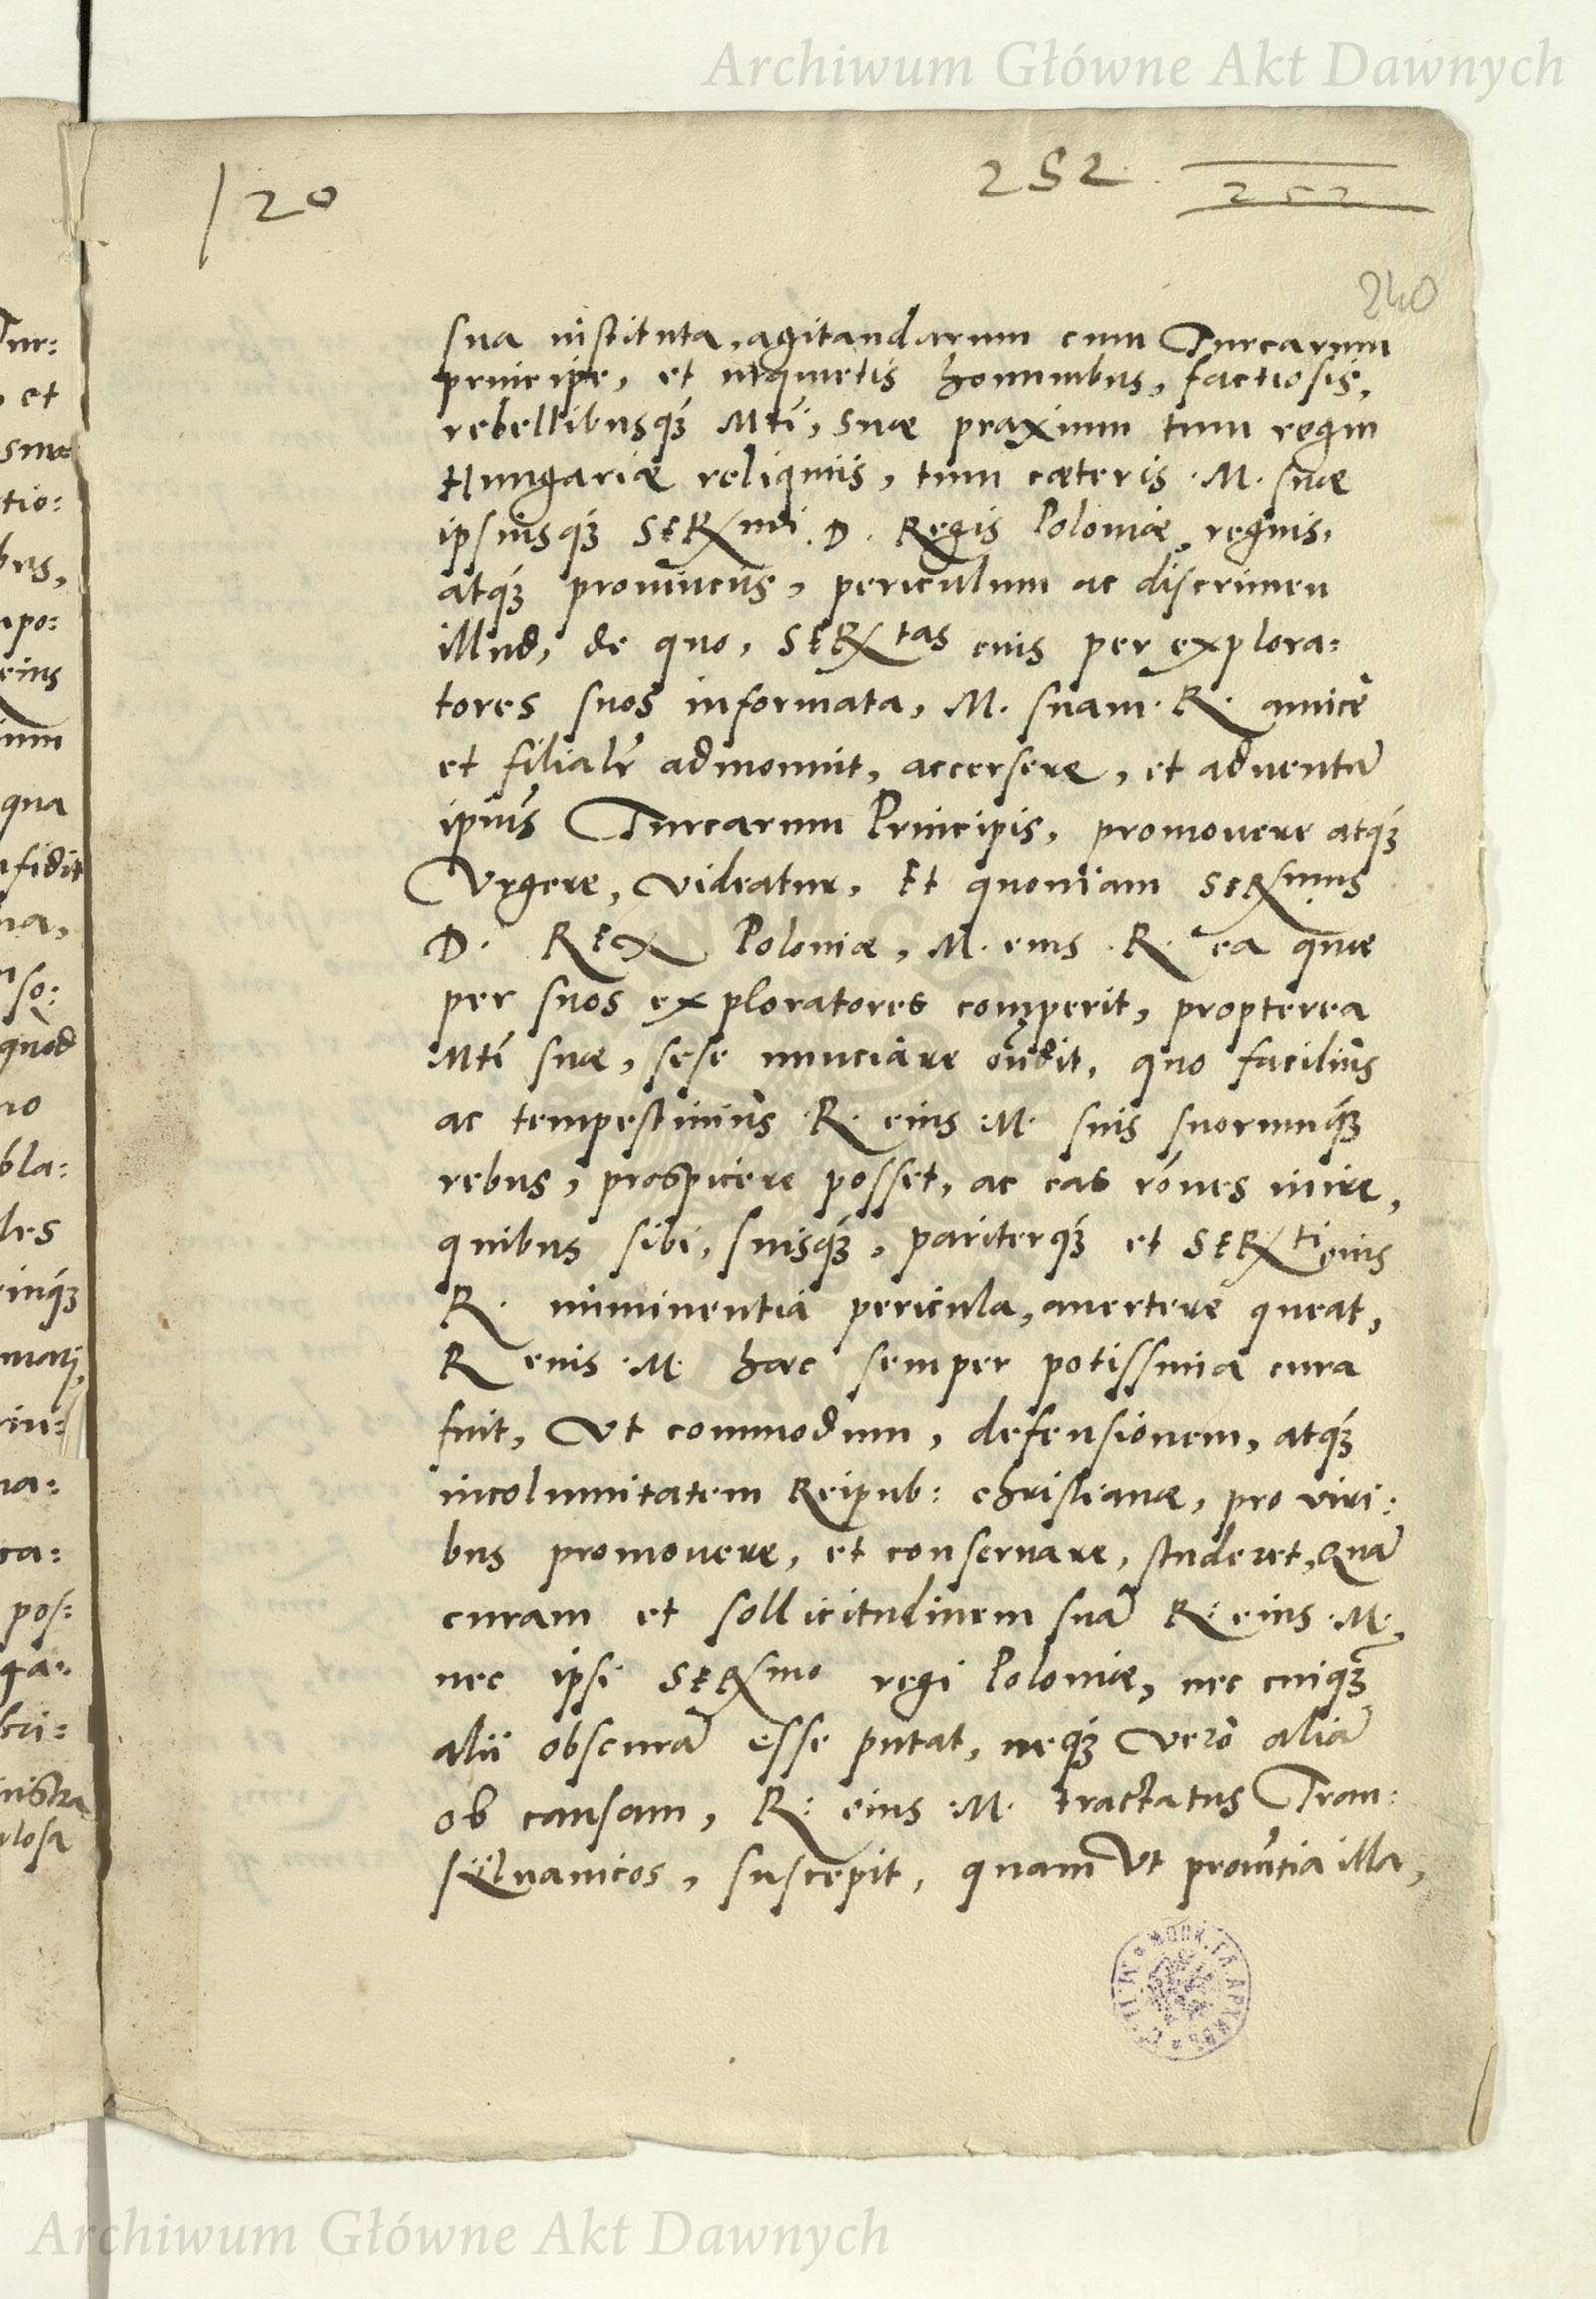 Archiwum Główne Akt Dawnych
120
252.
252
240
sua instituta, agitandarum cum Turcarum
principe, et inquietis hominibus, factiosis,
rebellibusq́ꝫ Mtí, Suæ praxium tum regni
Hungariæ reliquiis, tum cæteris .M. suæ
ipsiusq́ꝫ SERmi. D. Regis Poloniæ, regnis,
atq́ꝫ provinciis, periculum ac discrimen
illud, de quo, SERtas eius per explora:
tores suos informata, M. suam. R. amicè
et filialr̃ admonuit, accersere, et aduentũ
ipiũs Turcarum Principis, promouere atq́ꝫ
Vrgere, Videatur, Et quoniam SERmus
D. REX Poloniæ, M. eius .R. ea quæ
per suos exploratores comperit, propterea
Mtí suæ, sese nunciare on̄dit, quo facilius
ac tempestiuius .R. eius .M. suis suorumq́ꝫ
rebus, prospicere posset, ac eas rões inire,
quibus sibi, suisq́ꝫ, pariterq́ꝫ et SERti eius
R. imminentia pericula, auertere queat,
R eius .M. hæc semper potissima cura
fuit, Vt commodum, defensionem, atq́ꝫ
incolumitatem Reipub: christianæ, pro viri:
bus promouere, et conseruare, studeret, Quã
curam et sollicitudinem suã R: eius .M.
nec ipsi SERmo regi Poloniæ, nec cuiq̃ꝫ
alii obscurã esse putat, neq́ꝫ Verò aliã
ob causam, R: eius .M. tractatus Tran:
sÿluanicos, suscepit, quam Vt prouĩtia illa,
Archiwum Główne Akt Dawnych